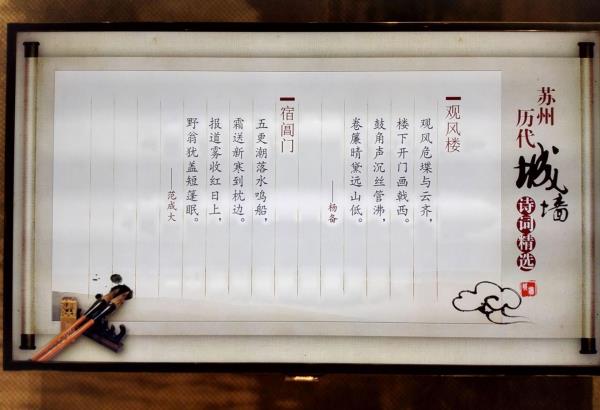 苏州
历代
城墙
诗词精选
观风楼
观风危堞与云齐，
楼下开门画戟西。
鼓角声沉丝管沸，
卷簾晴黛远山低。
——杨备
宿阊门
五更潮落水鸣船，
霜送新寒到枕边。
报道雾收红日上，
野翁犹盖短篷眠。
——范成大